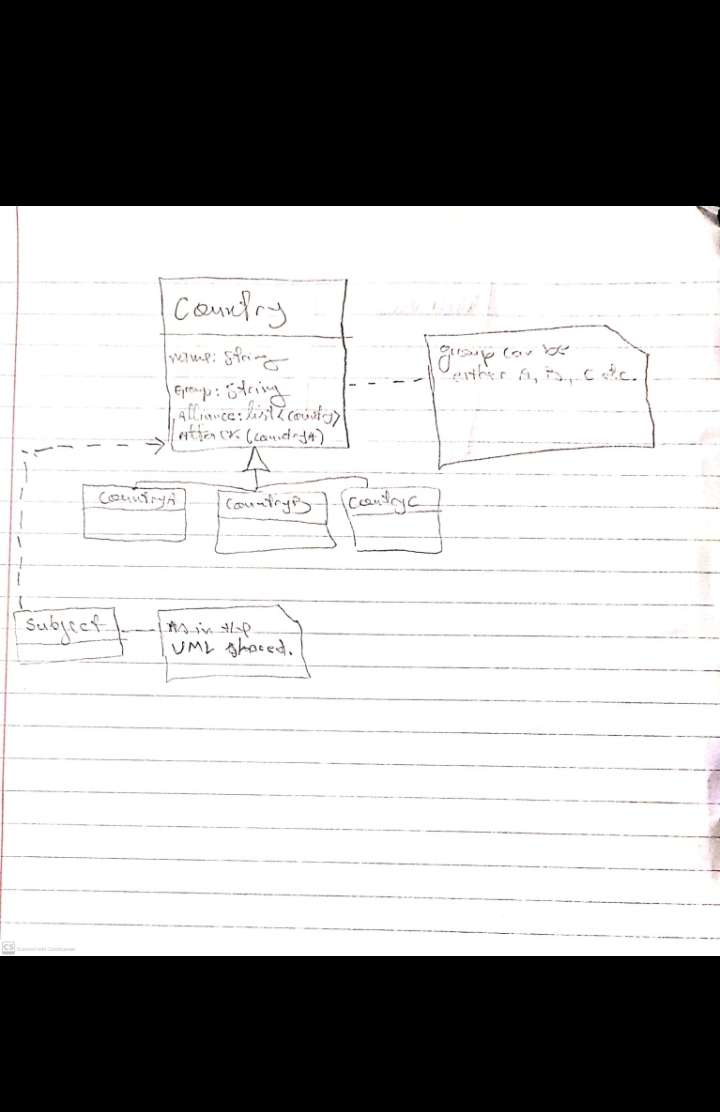 Country
name: String
Group: String
Alliance: list<country>
Attack (countryA)
group can be
either A, B, C etc.
CountryA
CountryB
CountryC
Subject
As in the
UML shared.
CS Scanned with CamScanner